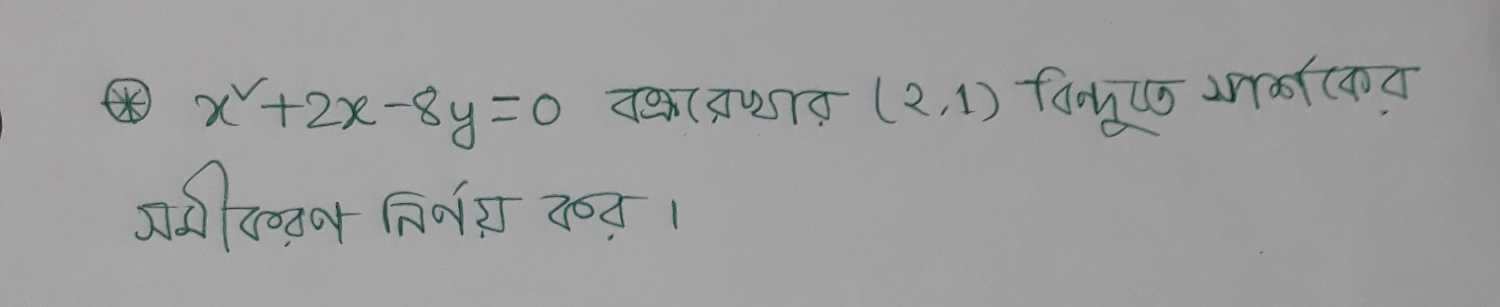 ⊛ x²+2x-8y=0 বক্ররেখার (2,1) বিন্দুতে স্পর্শকের
সমীকরণ নির্ণয় কর।